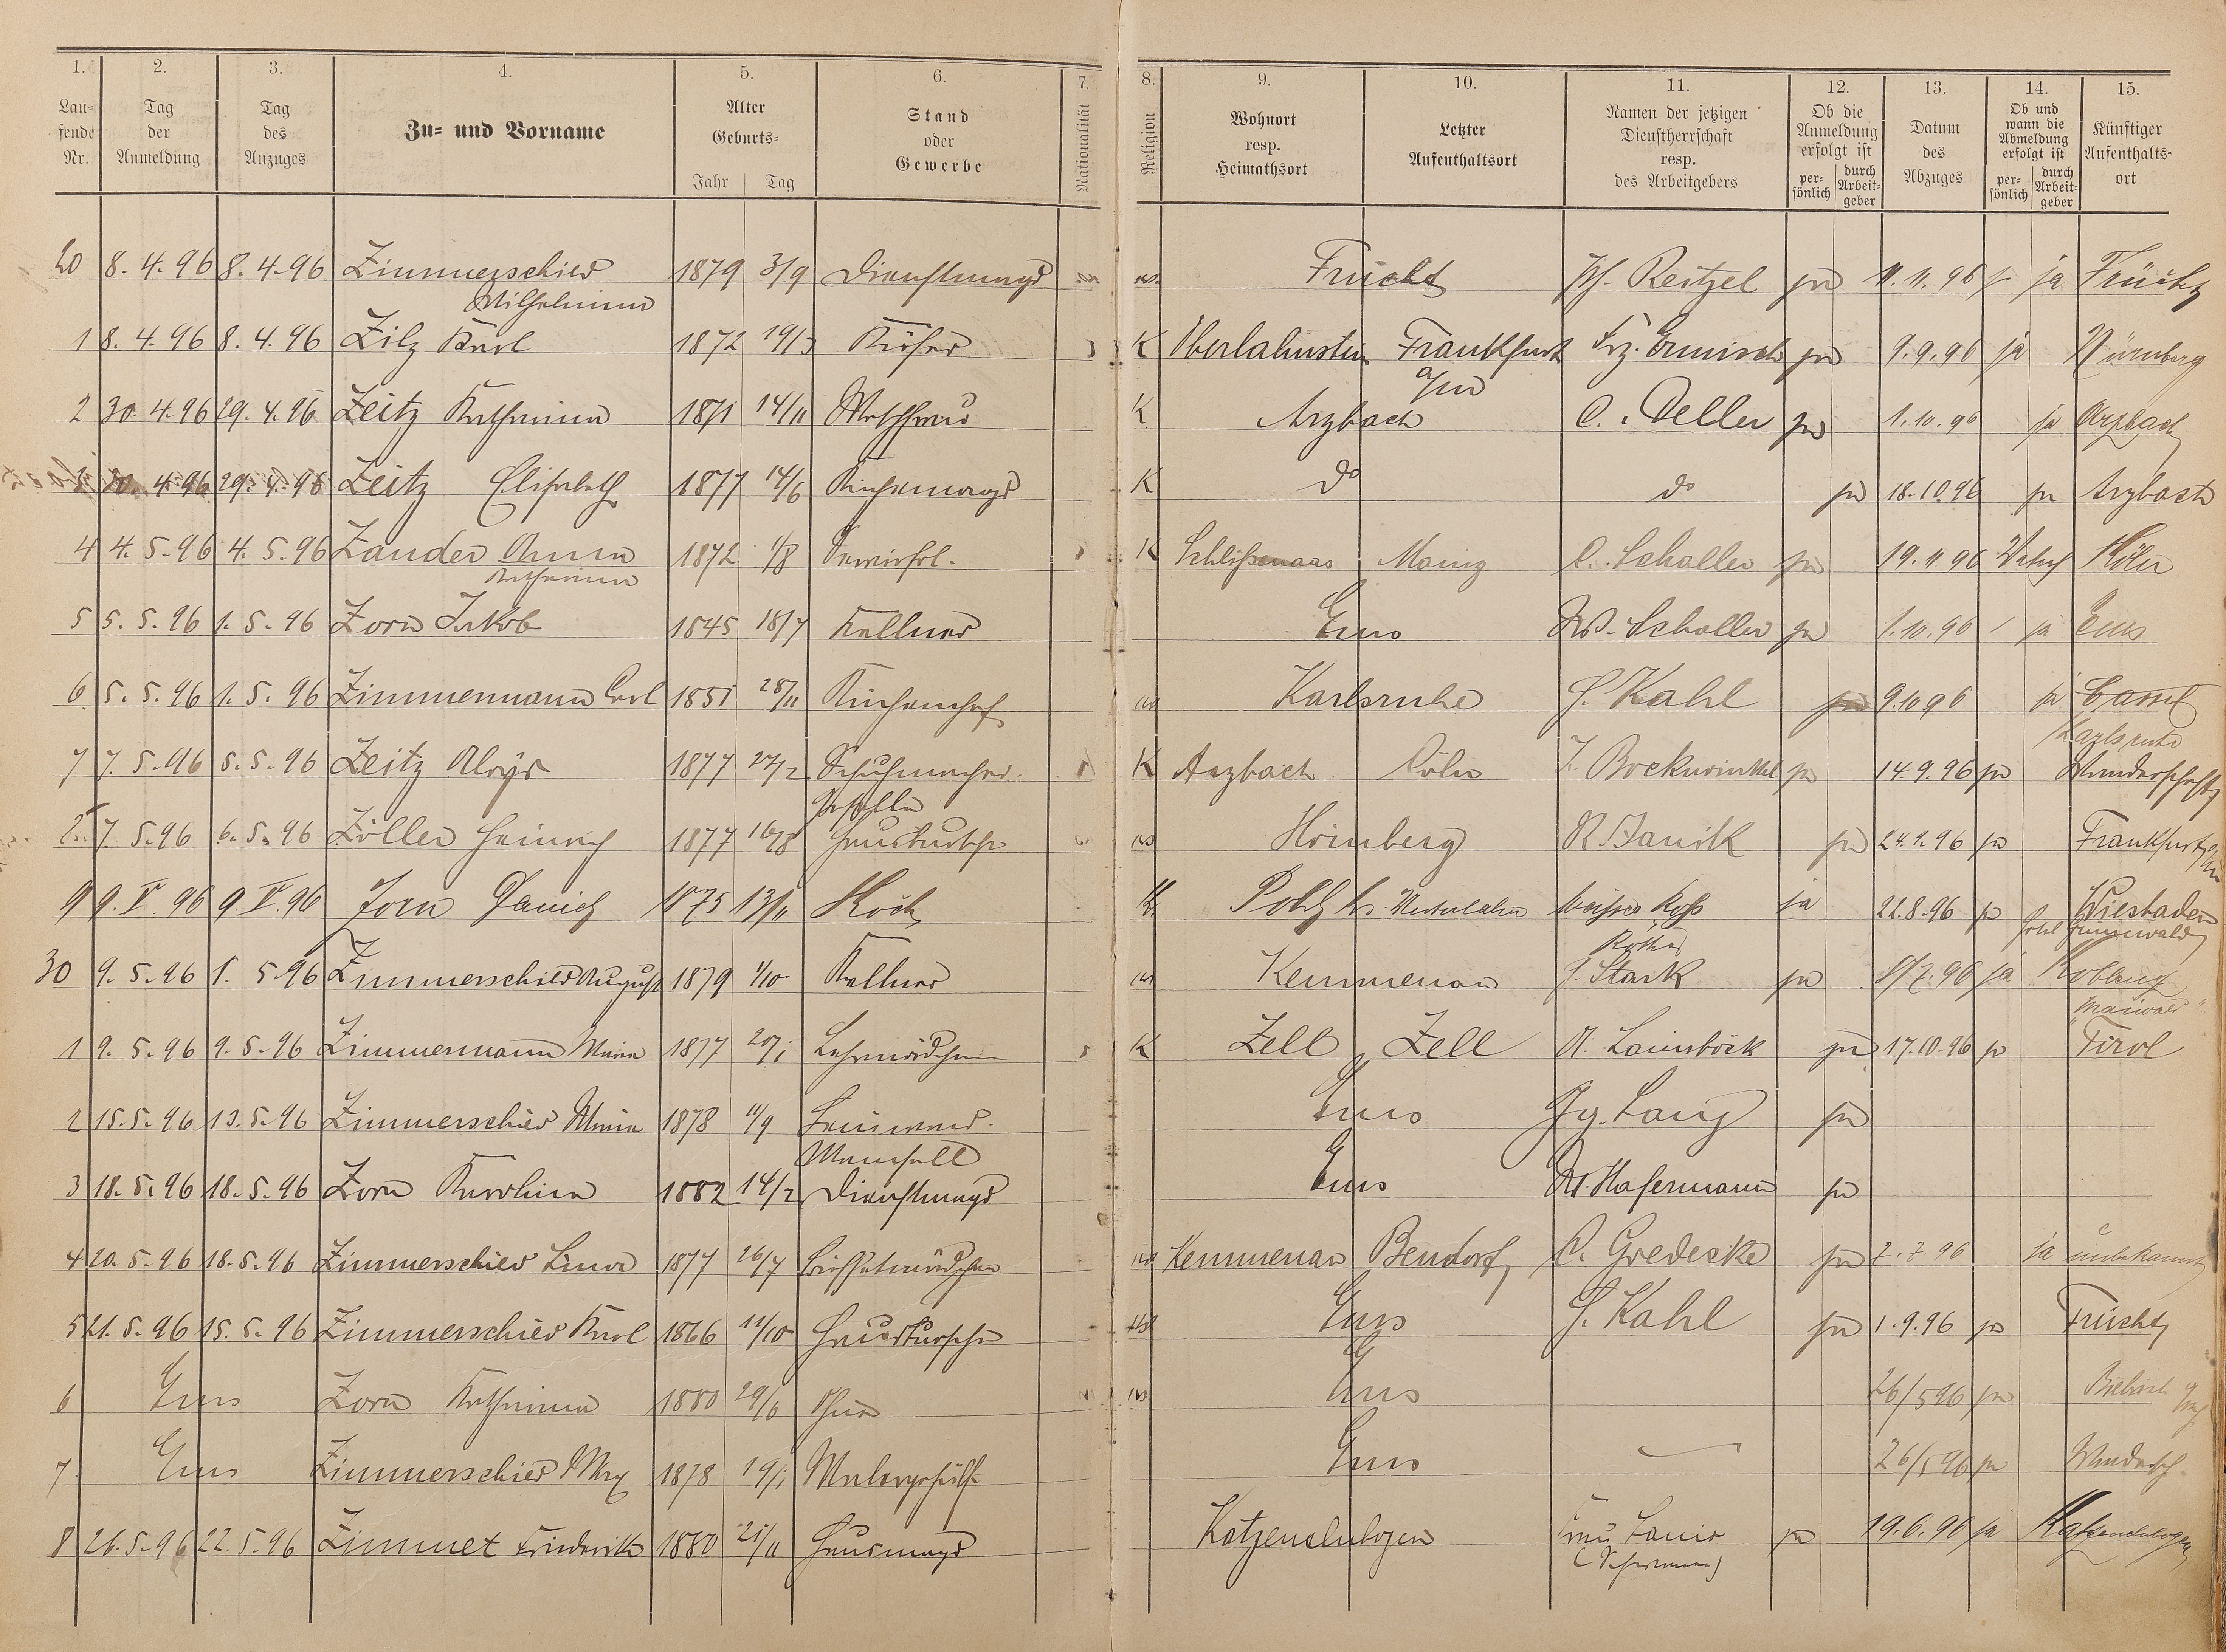 1. 2. 3. 4. 5. 6. 7. 8. 9. 10. 11. 12. 13. 14. 15.
Laufende Nr. Tag der Anmeldung Tag des Anzuges Zu- und Vorname Alter Geburts- Jahr Tag Stand oder Gewerbe Nationalität Religion Wohnort resp. Heimathsort Letzter Aufenthaltsort Namen der jetzigen Dienstherrschaft resp. des Arbeitgebers Ob die Anmeldung erfolgt ist persönlich durch Arbeitgeber Datum des Abzuges Ob und wann die Abmeldung erfolgt ist persönlich durch Arbeitgeber Künftiger Aufenthaltsort
20 8. 4. 96 8. 4. 96 Zimmerschied 1879 3/9 Dienstmagd Frücht Reitzel ja 11. 11. 96 ja Frücht
Wilhelmine
1 8. 4. 96 8. 4. 96 Zilz Karl 1872 19/3 Küfer K Oberlahnstein Frankfurt Frz. Ermisch ja 9. 9. 96 ja Nürnberg
a/m
2 30. 4. 96 29. 4. 96 Zeitz Katharina 1871 14/11 Waschfrau K Arzbach C. Deller ja 1. 10. 96 ja Arzbach
4. 96 29. 4. 96 Zeitz Elisabeth 1877 14/6 Küchenmagd K do do ja 18. 10. 96 ja Arzbach
4 4. 5. 96 4. 5. 96 Zander Anna 1872 1/8 K Mainz C. Schaller ja 19. 11. 96 Köln
Katharina
5 5. 5. 96 1. 5. 96 Zorn Jakob 1845 18/7 Kellner Ems Schaller ja 1. 10. 96 ja Ems
6 5. 5. 96 1. 5. 96 Zimmermann Carl 1851 28/11 Küchenchef Karlsruhe Kahl ja 9. 10 96 ja Cassel
Karlsruhe
7 7. 5. 96 5. 5. 96 Zeitz Aloys 1877 27/2 Schuhmacher K Arzbach Cöln J. Bockwinkel ja 14. 9. 96 ja Wanderschaft
Geselle
7. 5. 96 6. 5. 96 Zöller Heinrich 1877 16/8 Hausbursche Homberg R. Janik ja 24. 9. 96 ja Frankfurt
9 9. V. 96 9. V. 96 Zorn 1875 13/11 Koch K Pohl weißes Roß ja 21. 8. 96 ja Wiesbaden
30 9. 5. 96 1. 5. 96 Zimmerschied August 1879 1/10 Kellner Kemmenau Stark ja 96 ja Koblenz
1 9. 5. 96 9. 5. 96 Zimmermann Maria 1877 20/1 Lehrmädchen K Zell Zell A. Lainsböck ja 17. 10. 96 ja Tirol
2 15. 5. 96 13. 5. 96 Zimmerschied Maria 1878 11/9 Ems Gg. Lang ja
3 18. 5. 96 18. 5. 96 Zorn Karolina 1882 14/2 Dienstmagd Ems Hasermann ja
4 20. 5. 96 18. 5. 96 Zimmerschied Lina 1877 26/7 Büffetmädchen Kemmenau Bendorf Gredecke ja 2. 7. 96 ja unbekannt
5 21. 5. 96 15. 5. 96 Zimmerschied Karl 1866 11/10 Hausbursche Ems Kahl ja 1. 9. 96 ja Frücht
6 Ems Zorn Katharina 1880 29/6 Ems 26/5 96 ja
7 Ems Zimmerschied Max 1878 19/1 Malergehülfe Ems 26/5 96 ja Wandersch.
8 26. 5. 96 22. 5. 96 Zimmet Friederike 1880 21/11 Hausmagd Katzenelnbogen ja 19. 6. 96 ja Katzenelnbogen